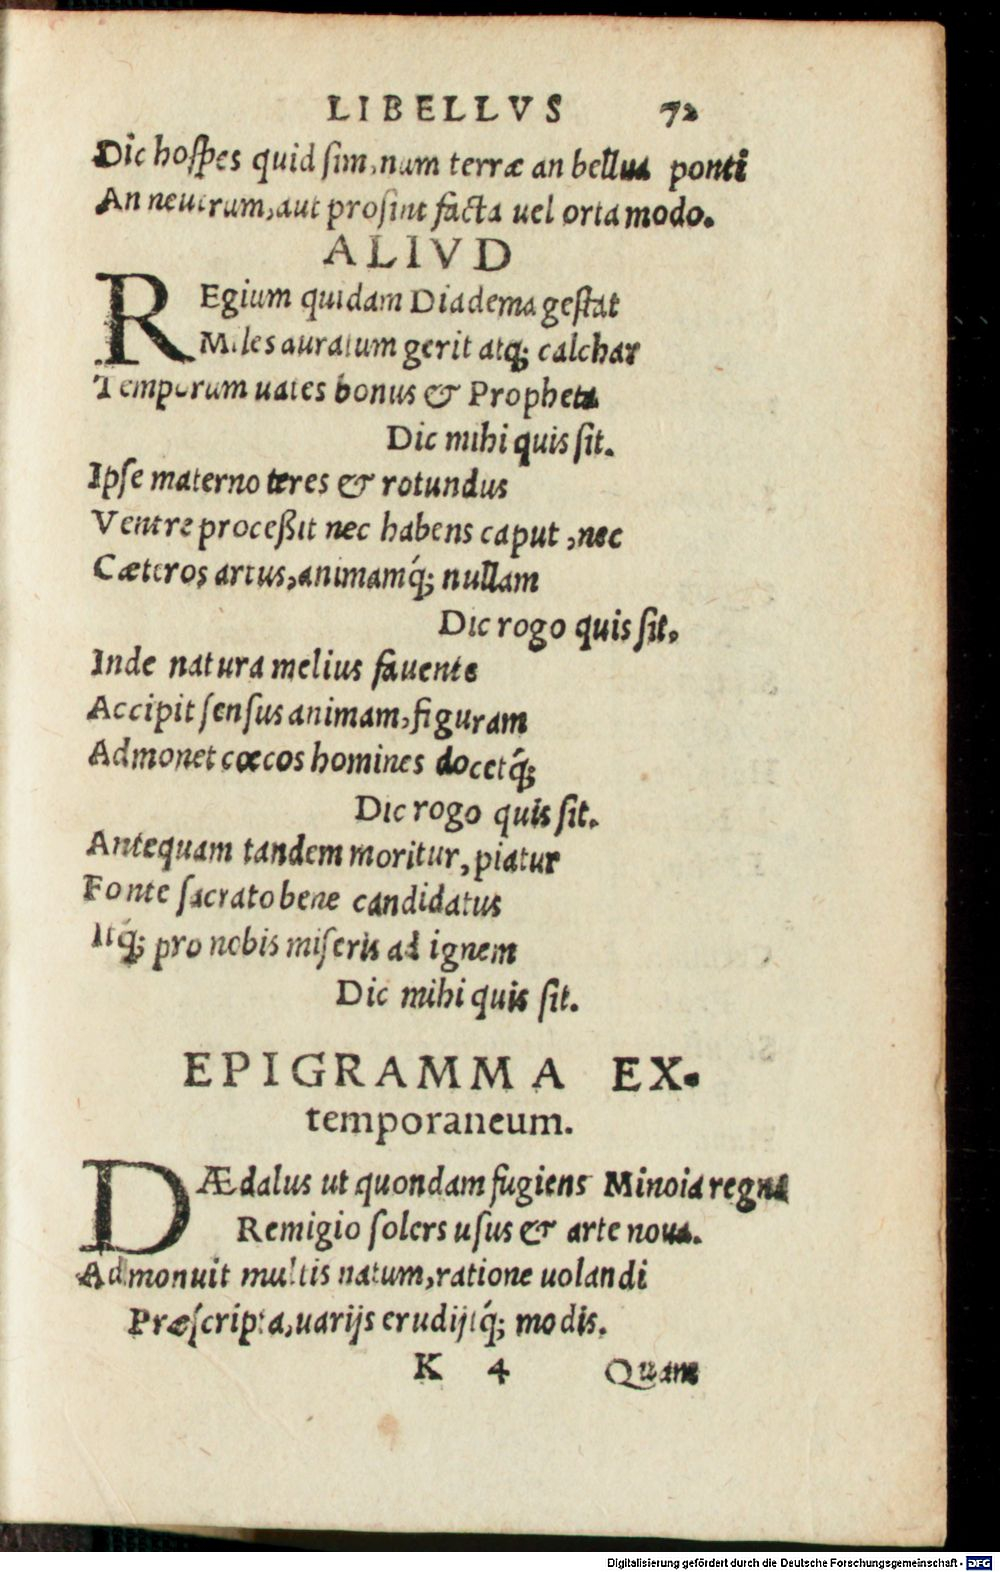 LIBELLVS 72
Dic hospes quid sim, num terræ an bellua ponti
An neutrum, aut prosint facta uel orta modo.
ALIVD
REgium quidam Diadema gestat
Miles auratum gerit atq; calchar
Temporum uates bonus & Propheta
Dic mihi quis sit.
Ipse materno teres & rotundus
Ventre proceßit nec habens caput, nec
Cæteros artus, animamq́; nullam
Dic rogo quis sit.
Inde natura melius fauente
Accipit sensus animam, figuram
Admonet cœcos homines docetq́;
Dic rogo quis sit.
Antequam tandem moritur, piatur
Fonte sacrato bene candidatus
Itq́; pro nobis miseris ad ignem
Dic mihi quis sit.
EPIGRAMMA EX-
temporaneum.
DÆdalus ut quondam fugiens Minoia regna
Remigio solers usus & arte noua.
Admonuit multis natum, ratione uolandi
Præscripta, uarijs erudijtq́; modis.
K 4 Quam
Digitalisierung gefördert durch die Deutsche Forschungsgemeinschaft - DFG